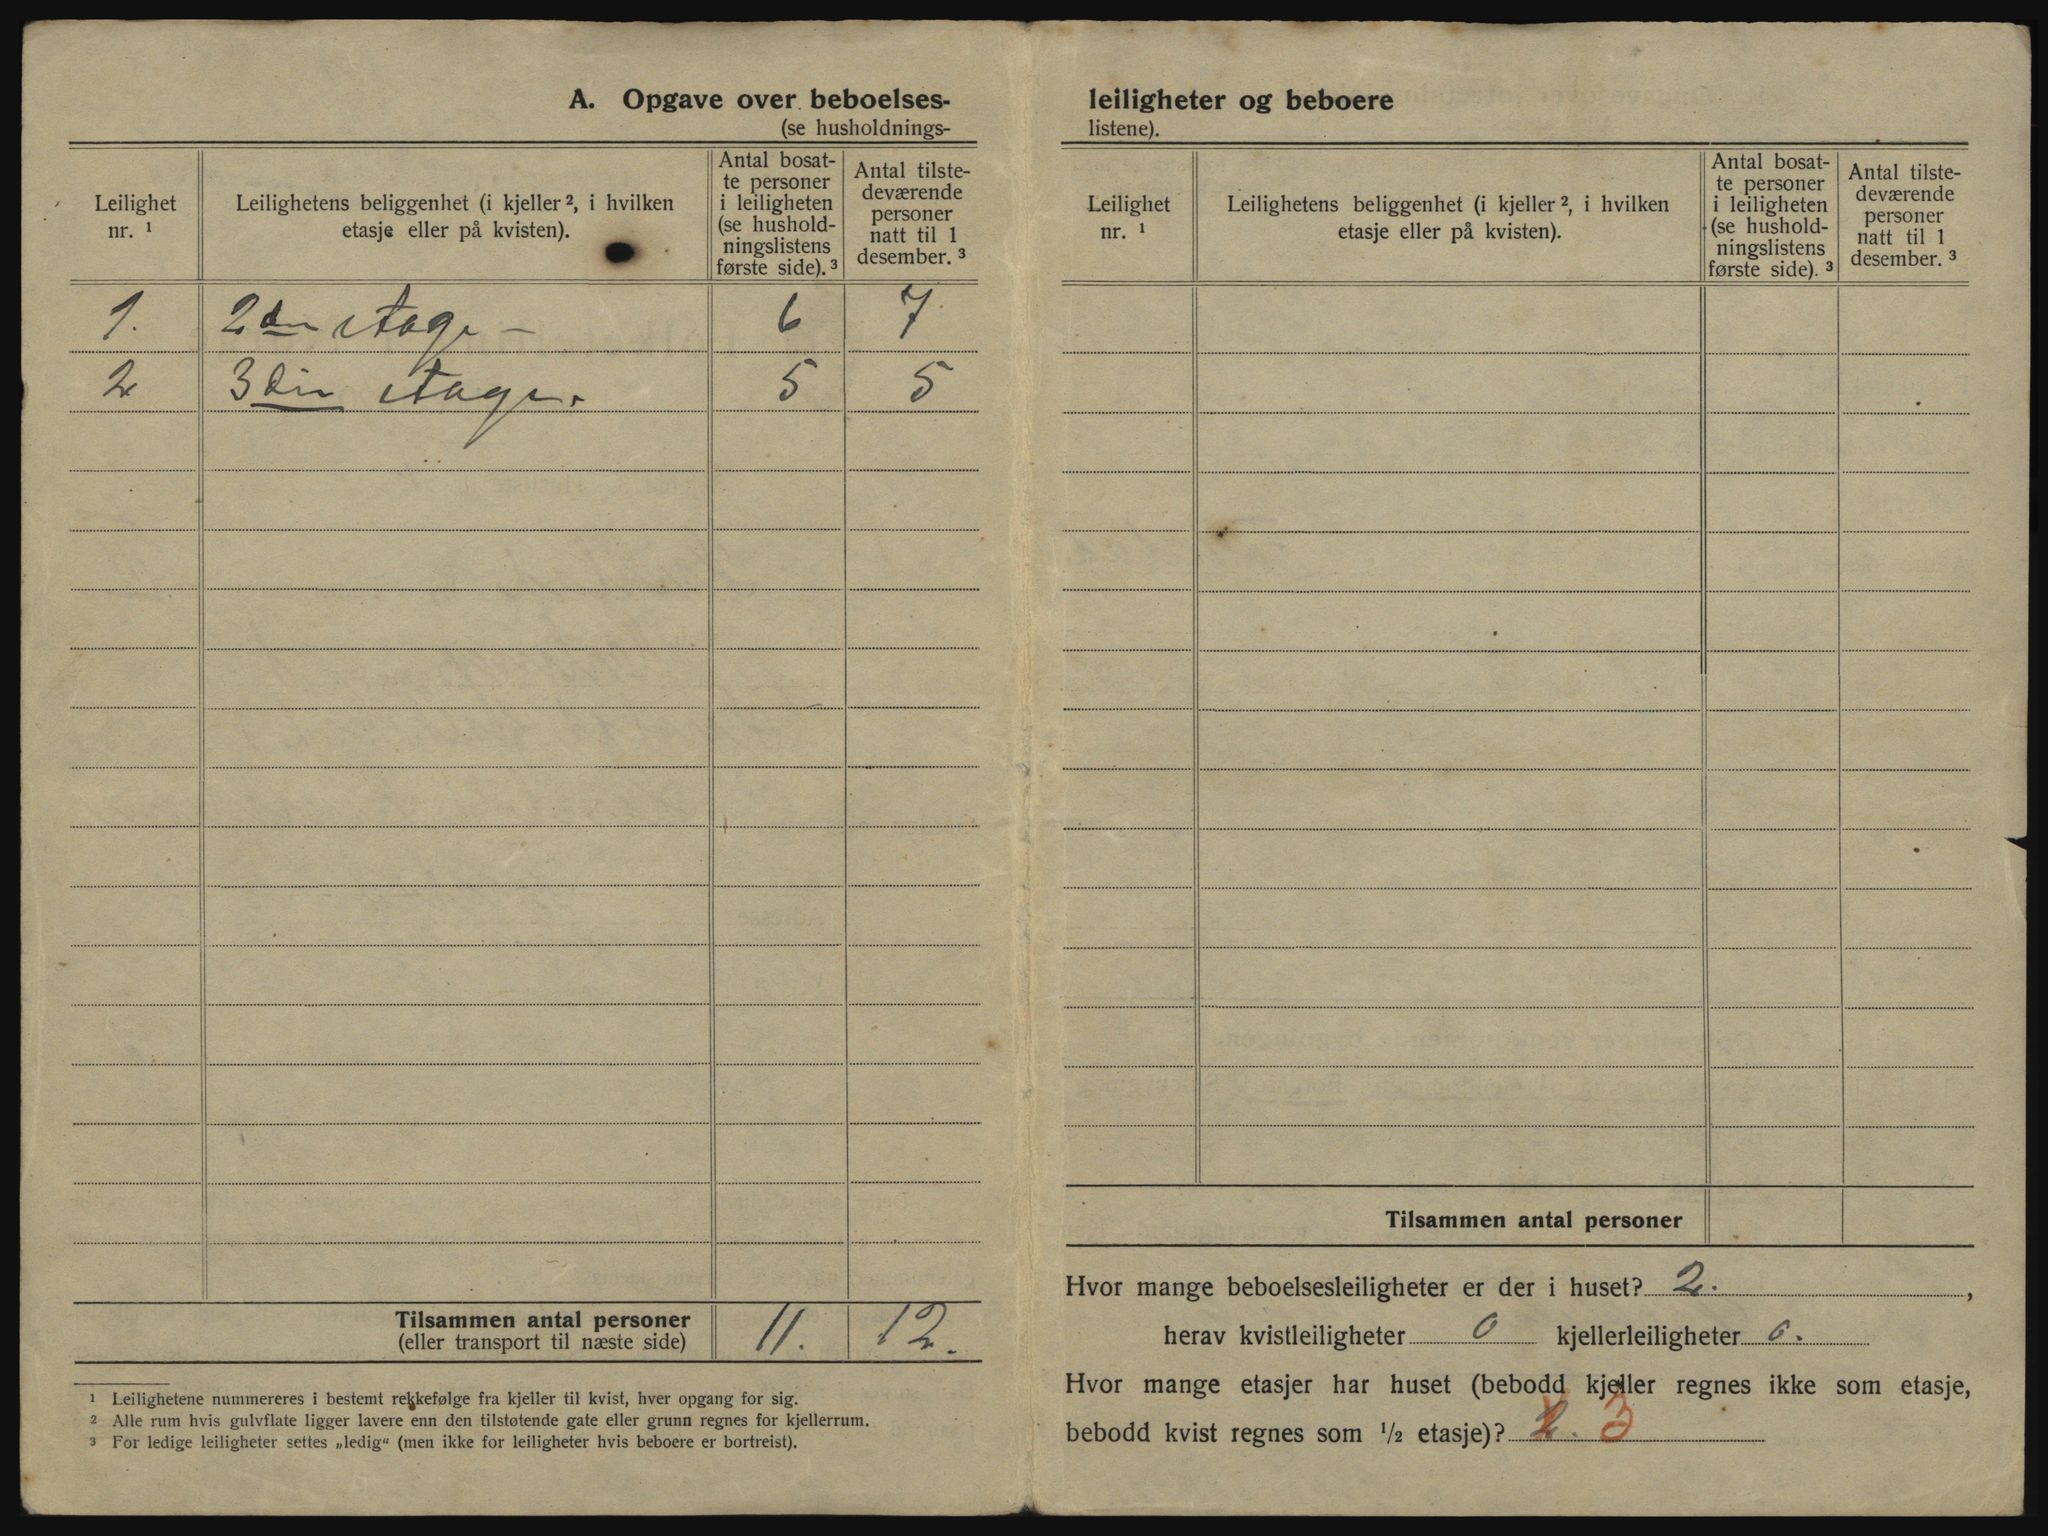 A. Opgave over beboelses-
(se husholdnings-
Leilighet
nr. ¹
Leilighetens beliggenhet (i kjeller ², i hvilken
etasje eller på kvisten).
Antal bosat-
te personer
i leiligheten
(se hushold-
ningslistens
første side). ³
Antal tilste-
deværende
personer
natt til 1
desember. ³
1. 2den etage - 6 7
2 3die etage. 5 5
Tilsammen antal personer
(eller transport til næste side)
11. 12.
¹ Leilighetene nummereres i bestemt rekkefølge fra kjeller til kvist, hver opgang for sig.
² Alle rum hvis gulvflate ligger lavere enn den tilstøtende gate eller grunn regnes for kjellerrum.
³ For ledige leiligheter settes „ledig“ (men ikke for leiligheter hvis beboere er bortreist).
leiligheter og beboere
listene).
Leilighet
nr. ¹
Leilighetens beliggenhet (i kjeller ², i hvilken
etasje eller på kvisten).
Antal bosat-
te personer
i leiligheten
(se hushold-
ningslistens
første side). ³
Antal tilste-
deværende
personer
natt til 1
desember. ³
Tilsammen antal personer
Hvor mange beboelsesleiligheter er der i huset? 2. ,
herav kvistleiligheter 0 kjellerleiligheter 0.
Hvor mange etasjer har huset (bebodd kjeller regnes ikke som etasje,
bebodd kvist regnes som ½ etasje)? 2. 3